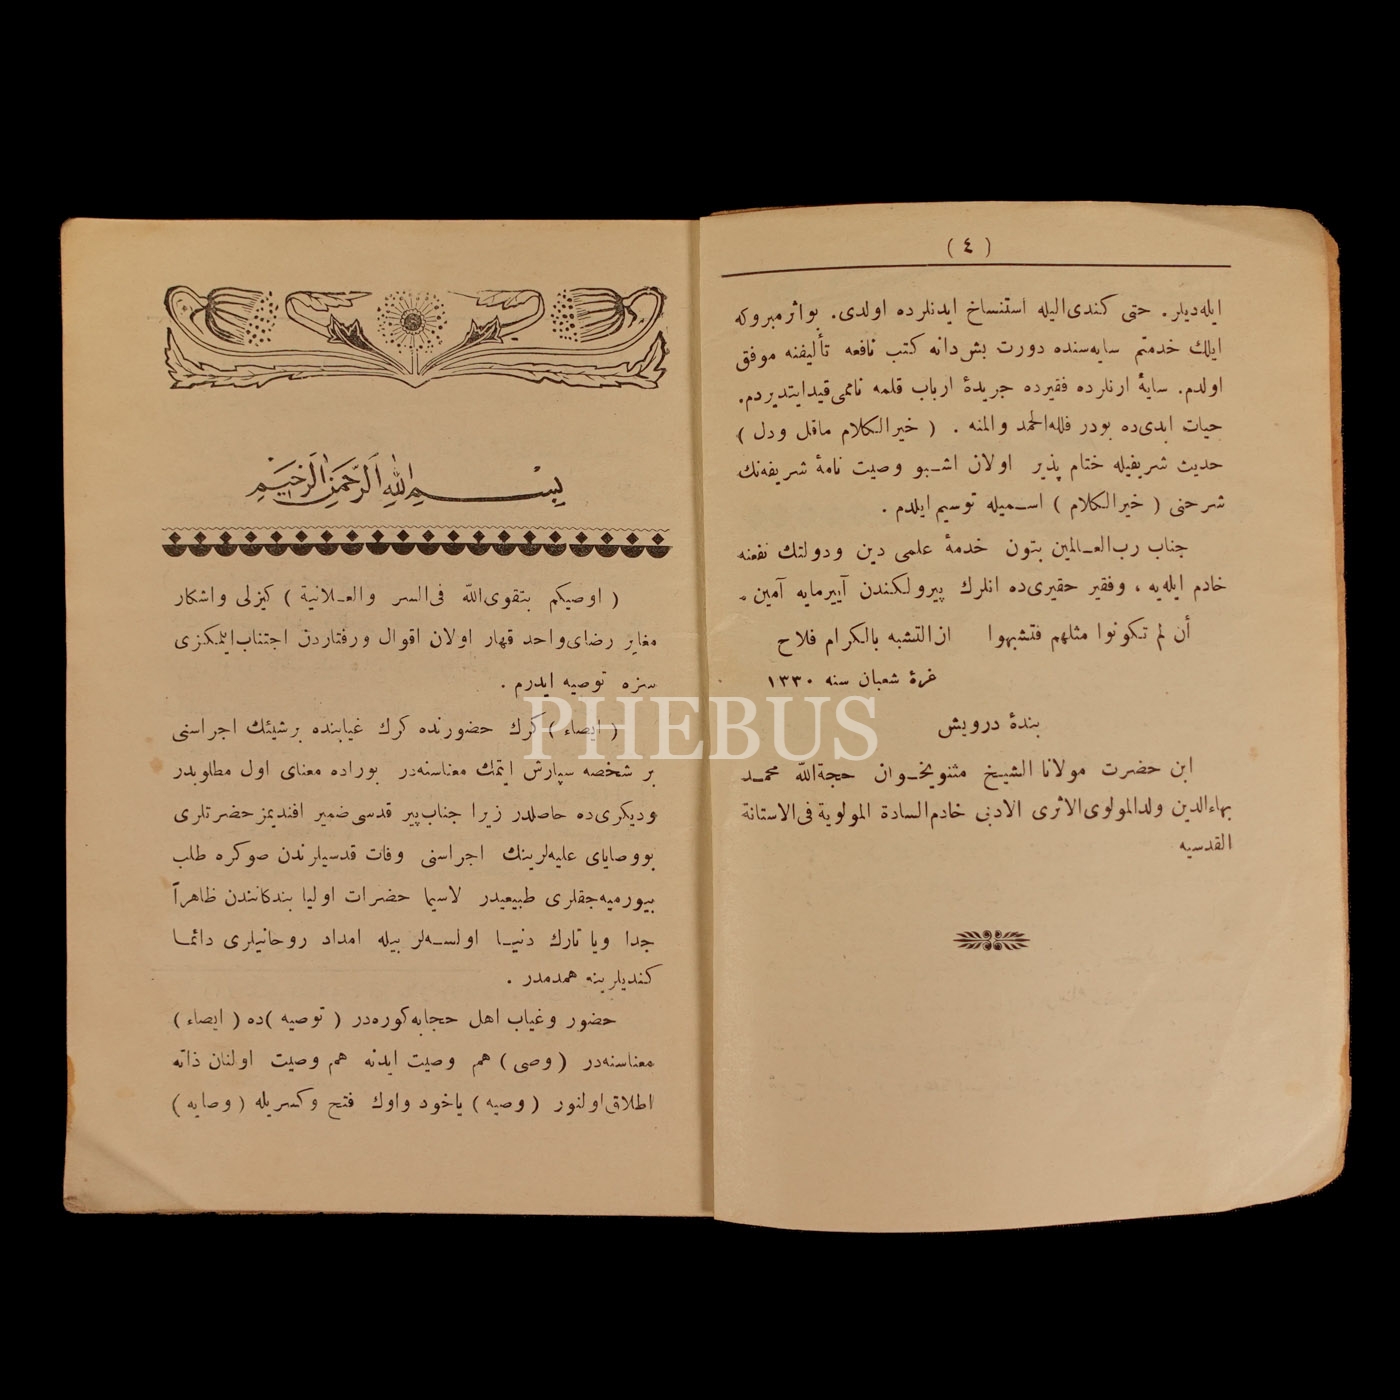 ( ٤ )
ایله‌دیلر . حتی کندی‌الیله استنساخ ایدنلرده اولدی . بواثرمبروکه
ایلك خدمتم سایه‌سنده دورت بش‌دانه کتب نافعه تألیفنه موفق
اولدم . سایۀ ارنلرده فقیرده جریدۀ ارباب قلمه نامی‌قیدایتدیردم .
حیات ابدی‌ده بودر فلله‌الحمد والمنه . ( خیرالکلام ماقل ودل )
حدیث شریفیله ختام پذیر اولان اشبو وصیت نامۀ شریفه‌نك
شرحنی ( خیرالکلام ) اسمیله توسیم ایلدم .
جناب رب‌العالمین بتون خدمۀ علمی دین ودولتك نفعنه
خادم ایله‌یه ، وفقیر حقیری‌ده انلرك پیرولکندن آییرمایه آمین .
أن لم تکونوا مثلهم فتشبهوا ازالتشبه بالکرام فلاح
غرۀ شعبان سنه ١٣٣٠
بندۀ درویش
ابن حضرت مولانا الشیخ مثنویخوان حجةالله محمد
بهاءالدین ولدالمولوی‌الاثری الادنی خادم‌السادة المولویة فی‌الاستانة
القدسیه
بسم الله الرحمن الرحیم
( اوصیکم بتقوی‌الله فی‌السر والعلانیة ) کیزلی واشکار
مغایر رضای‌واحد قهار اولان اقوال ورفتاردن اجتناب‌ایتمکزی
سزه توصیه ایدرم .
( ایصاء ) کرك حضورنده کرك غیابنده برشیئك اجراسنی
بر شخصه سپارش ایتمك معناسنه‌در بوراده معنای اول مطلوبدر
ودیکری‌ده حاصلدر زیرا جناب‌پیر قدسی‌ضمیر افندیمزحضرتلری
بووصایای علیه‌لرینك اجراسنی وفات قدسیلرندن صوکره طلب
بیورمیه‌جقلری طبیعیدر لاسیما حضرات اولیا بندکانندن ظاهراً
جدا ویا تارك دنیا اولسه‌لر بیله امداد روحانیلری دائما
کندیلرینه همدمدر .
حضور وغیاب اهل حجابه‌کوره‌در ( توصیه )ده ( ایصاء )
معناسنه‌در ( وصی ) هم وصیت ایدنه هم وصیت اولنان ذاته
اطلاق‌اولنور ( وصیه ) یاخود واوك فتح وکسریله ( وصایه )
PHEBUS